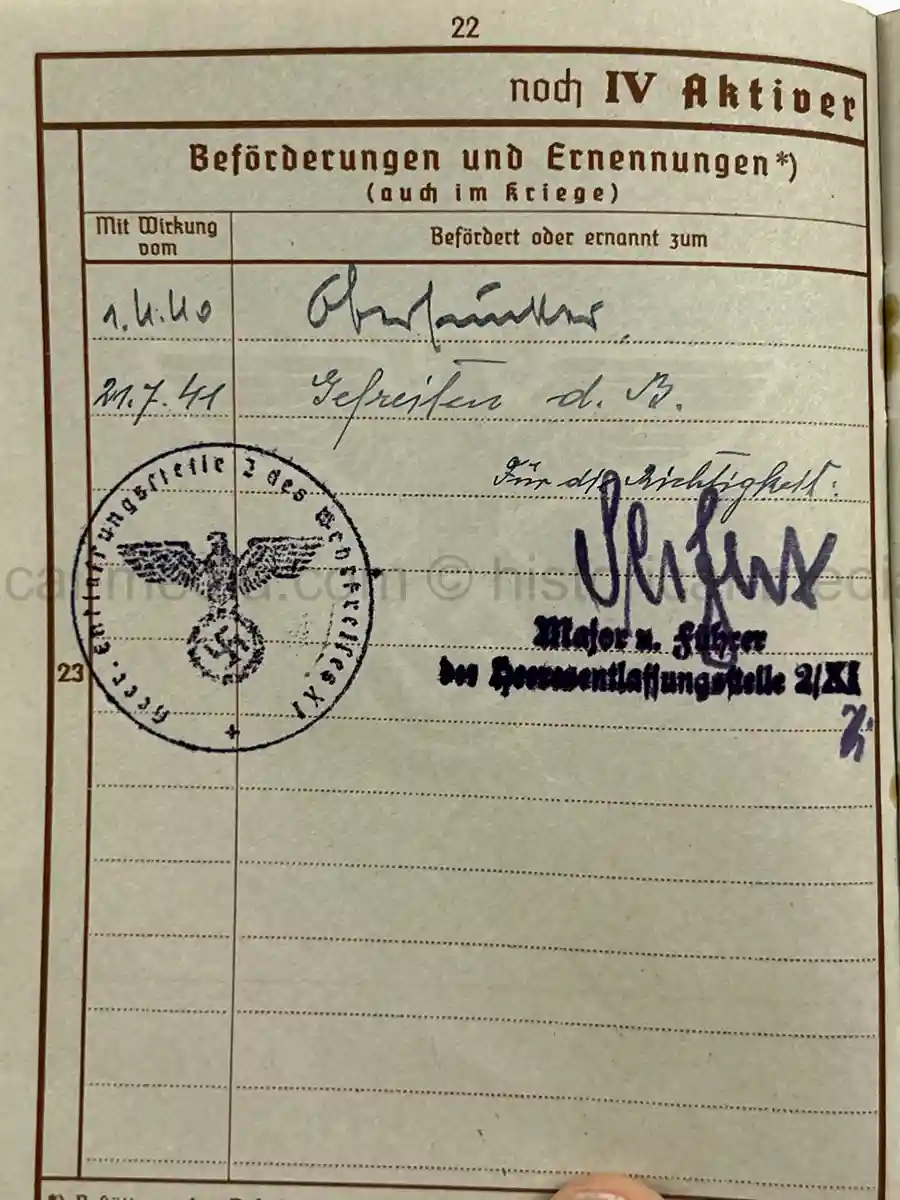 22
noch IV Aktiver
Beförderungen und Ernennungen*)
(auch im Kriege)
Mit Wirkung
vom
Befördert oder ernannt zum
1.4.40 Oberfunker
21.7.41 Gefreiten d. B.
Für die Richtigkeit:
Major u. Führer
der Heeresentlassungsstelle 2/XI
Heer. Entlassungsstelle 2 des Wehrkreises XI
23